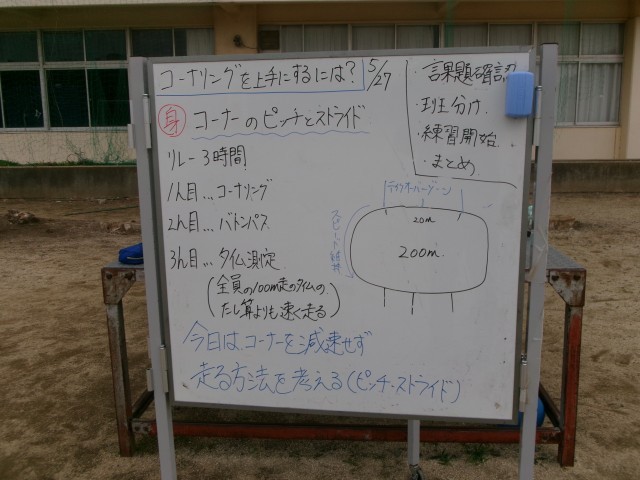 コーナリングを上手にするには？ 5/27
身 コーナーのピッチとストライド
リレー3時間
1h目…コーナリング
2h目…バトンパス
3h目…タイム測定
(全員の100m走のタイムの
たし算よりも速く走る)
今日は、コーナーを減速せず
走る方法を考える(ピッチ・ストライド)
・課題確認
・班分け
・練習開始
・まとめ
テイクオーバーゾーン
20m
200m